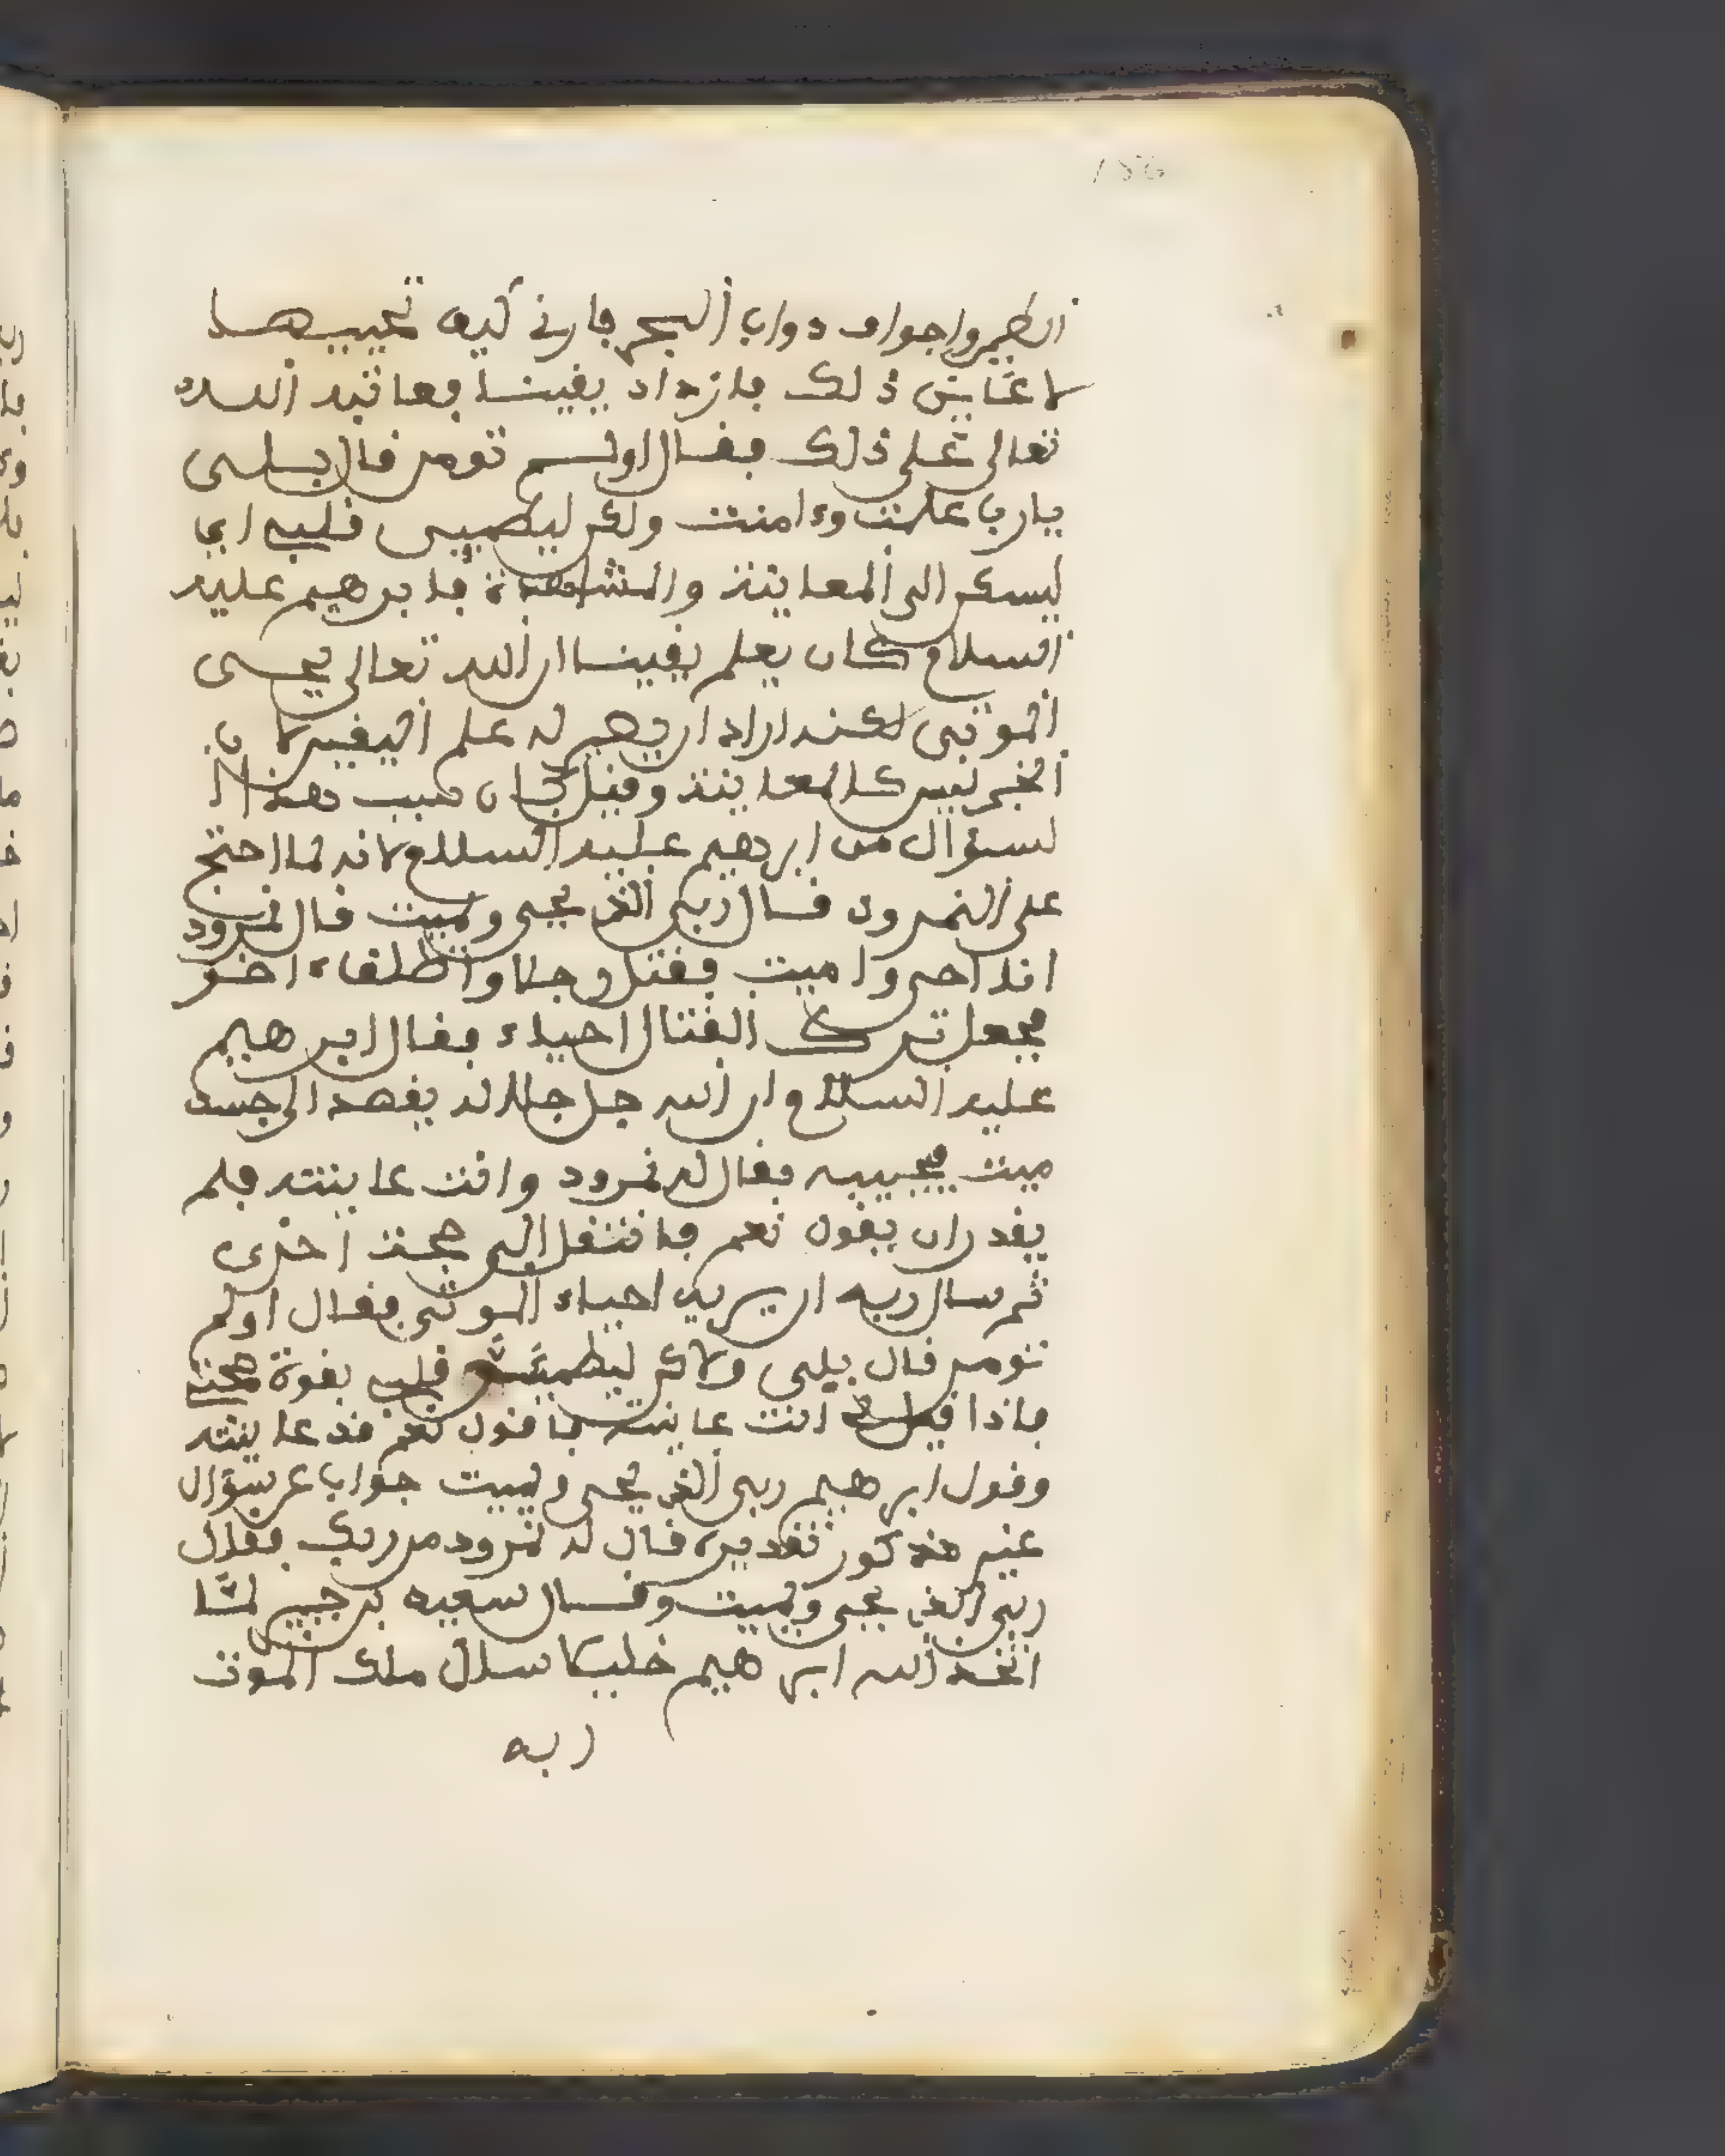 186
الطير واجواف دواب البحر فارني كيف تحييها
لاعاين ذلك فازداد يقينا فعاتبه الله
تعالى على ذلك فقال اولم تومن قال بلى
يارب علمت وءامنت ولكن ليطمين قلبي اي
ليسكن الى المعاينة والمشاهدة فابرهيم عليه
السلام كان يعلم يقينا ان الله تعالى يحيى
الموتى لكنه اراد ان يصير له علم اليقين لان
الخبر ليس كالمعاينة وقيل كان سبب هذا ا
لسؤال من ابرهيم عليه السلام لانه لما احتج
على النمرود قال ربي الذي يحيي ويميت قال نمرود
انا احيي واميت فقتل رجلا واطلقاء اخر
فجعل ترك القتال احياء فقال ابرهيم
عليه السلام ان الله جل جلاله يقصد الى جسد
ميت فيحييه فقال له نمرود وانت عاينته فلم
يقدر ان يقول نعم فانتقل الى حجة اخرى
ثم سال ربه ان يريه احياء الموتى فقال اولم
تومن قال بلى ولاكن ليطمين قلبي بقوة حجتي
فاذا قيل انت عاينته فاقول نعم قد عاينته
وقول ابرهيم ربي الذي يحيي ويميت جواب عن سؤال
غير مذكور تقديره قال له نمرود من ربك فقال
ربي الذي يحيي ويميت وقال سعيد بن جبير لما
اتخذ الله ابرهيم خليلا سال ملك الموت
ربه